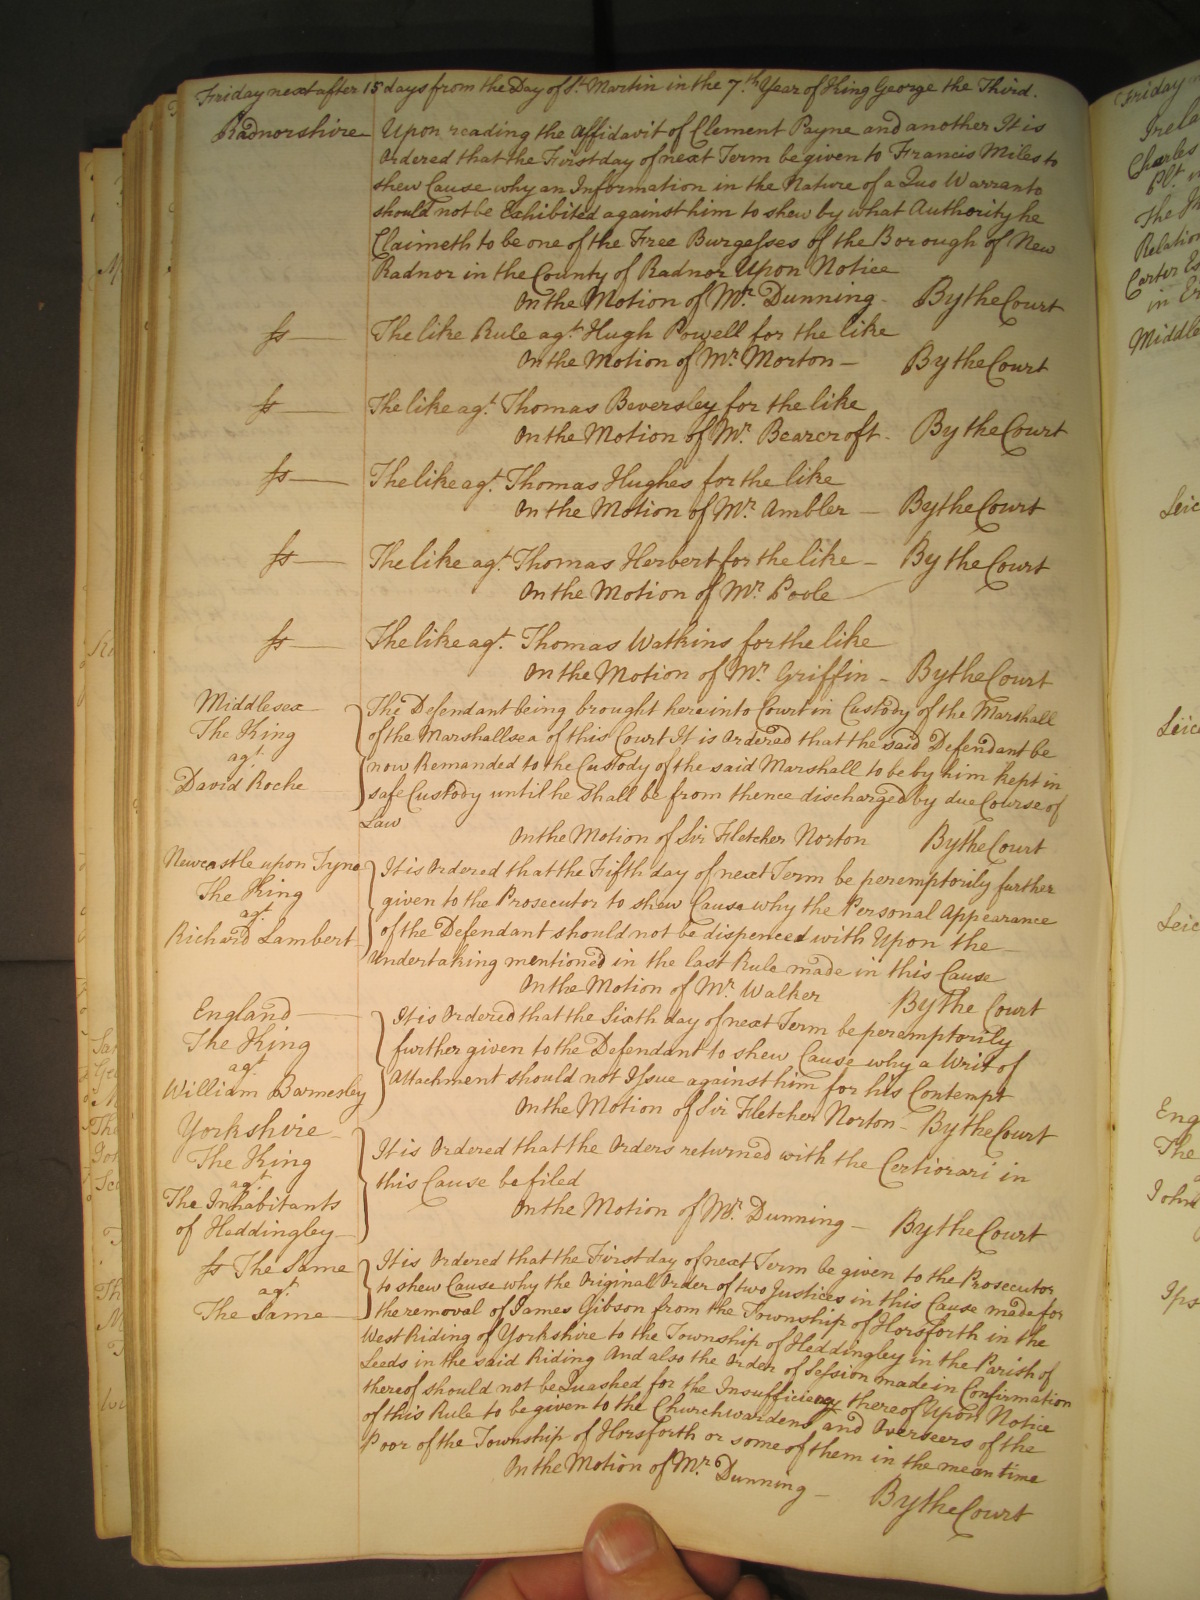 Friday next after 15 days from the Day of St. Martin in the 7.th Year of King George the Third.
Radnorshire Upon reading the Affidavit of Clement Payne and another It is
Ordered that the First day of next Term be given to Francis Miles to
shew Cause why an Information in the Nature of a Quo Warranto
should not be Exhibited against him to shew by what Authority he
Claimeth to be one of the Free Burgesses of the Borough of New
Radnor in the County of Radnor Upon Notice
On the Motion of Mr. Dunning - By the Court
ss The like Rule agt. Hugh Powell for the like
On the Motion of Mr. Morton - By the Court
ss The like agt. Thomas Beversley for the like
On the Motion of Mr. Bearcroft - By the Court
ss The like agt. Thomas Hughes for the like
On the Motion of Mr. Ambler - By the Court
ss The like agt. Thomas Herbert for the like - By the Court
On the Motion of Mr. Poole
ss The like agt. Thomas Watkins for the like
On the Motion of Mr. Griffin - By the Court
Middlesex
The King
agt.
David Roche
The Defendant being brought here into Court in Custody of the Marshall
of the Marshallsea of this Court It is Ordered that the said Defendant be
now Remanded to the Custody of the said Marshall to be by him kept in
safe Custody until he shall be from thence discharged by due Course of
Law
On the Motion of Sir Fletcher Norton By the Court
Newcastle upon Tyne
The King
agt.
Richard Lambert
It is Ordered that the Fifth day of next Term be peremptorily further
given to the Prosecutor to shew Cause why the Personal Appearance
of the Defendant should not be dispenced with Upon the
Undertaking mentioned in the last Rule made in this Cause
On the Motion of Mr. Walker By the Court
England
The King
agt.
William Barnesley
It is Ordered that the Sixth day of next Term be peremptorily
further given to the Defendant to shew Cause why a Writ of
Attachment should not Issue against him for his Contempt
On the Motion of Sir Fletcher Norton - By the Court
Yorkshire
The King
agt.
The Inhabitants
of Heddingley
It is Ordered that the Orders returned with the Certiorari in
this Cause be filed
On the Motion of Mr. Dunning - By the Court
ss The Same
agt.
The Same
It is Ordered that the First day of next Term be given to the Prosecutor
to shew Cause why the Original Order of two Justices in this Cause made for
the removal of James Gibson from the Township of Horsforth in the
West Riding of Yorkshire to the Township of Heddingley in the Parish of
Leeds in the said Riding And also the Order of Session made in Confirmation
thereof should not be Quashed for the Insufficiency thereof Upon Notice
of this Rule to be given to the Churchwardens and Overseers of the
Poor of the Township of Horsforth or some of them in the mean time
On the Motion of Mr. Dunning - By the Court
Friday
Charles
The
Relation
Carter
in
Middle
Leic
Leic
Leic
Eng
The
John